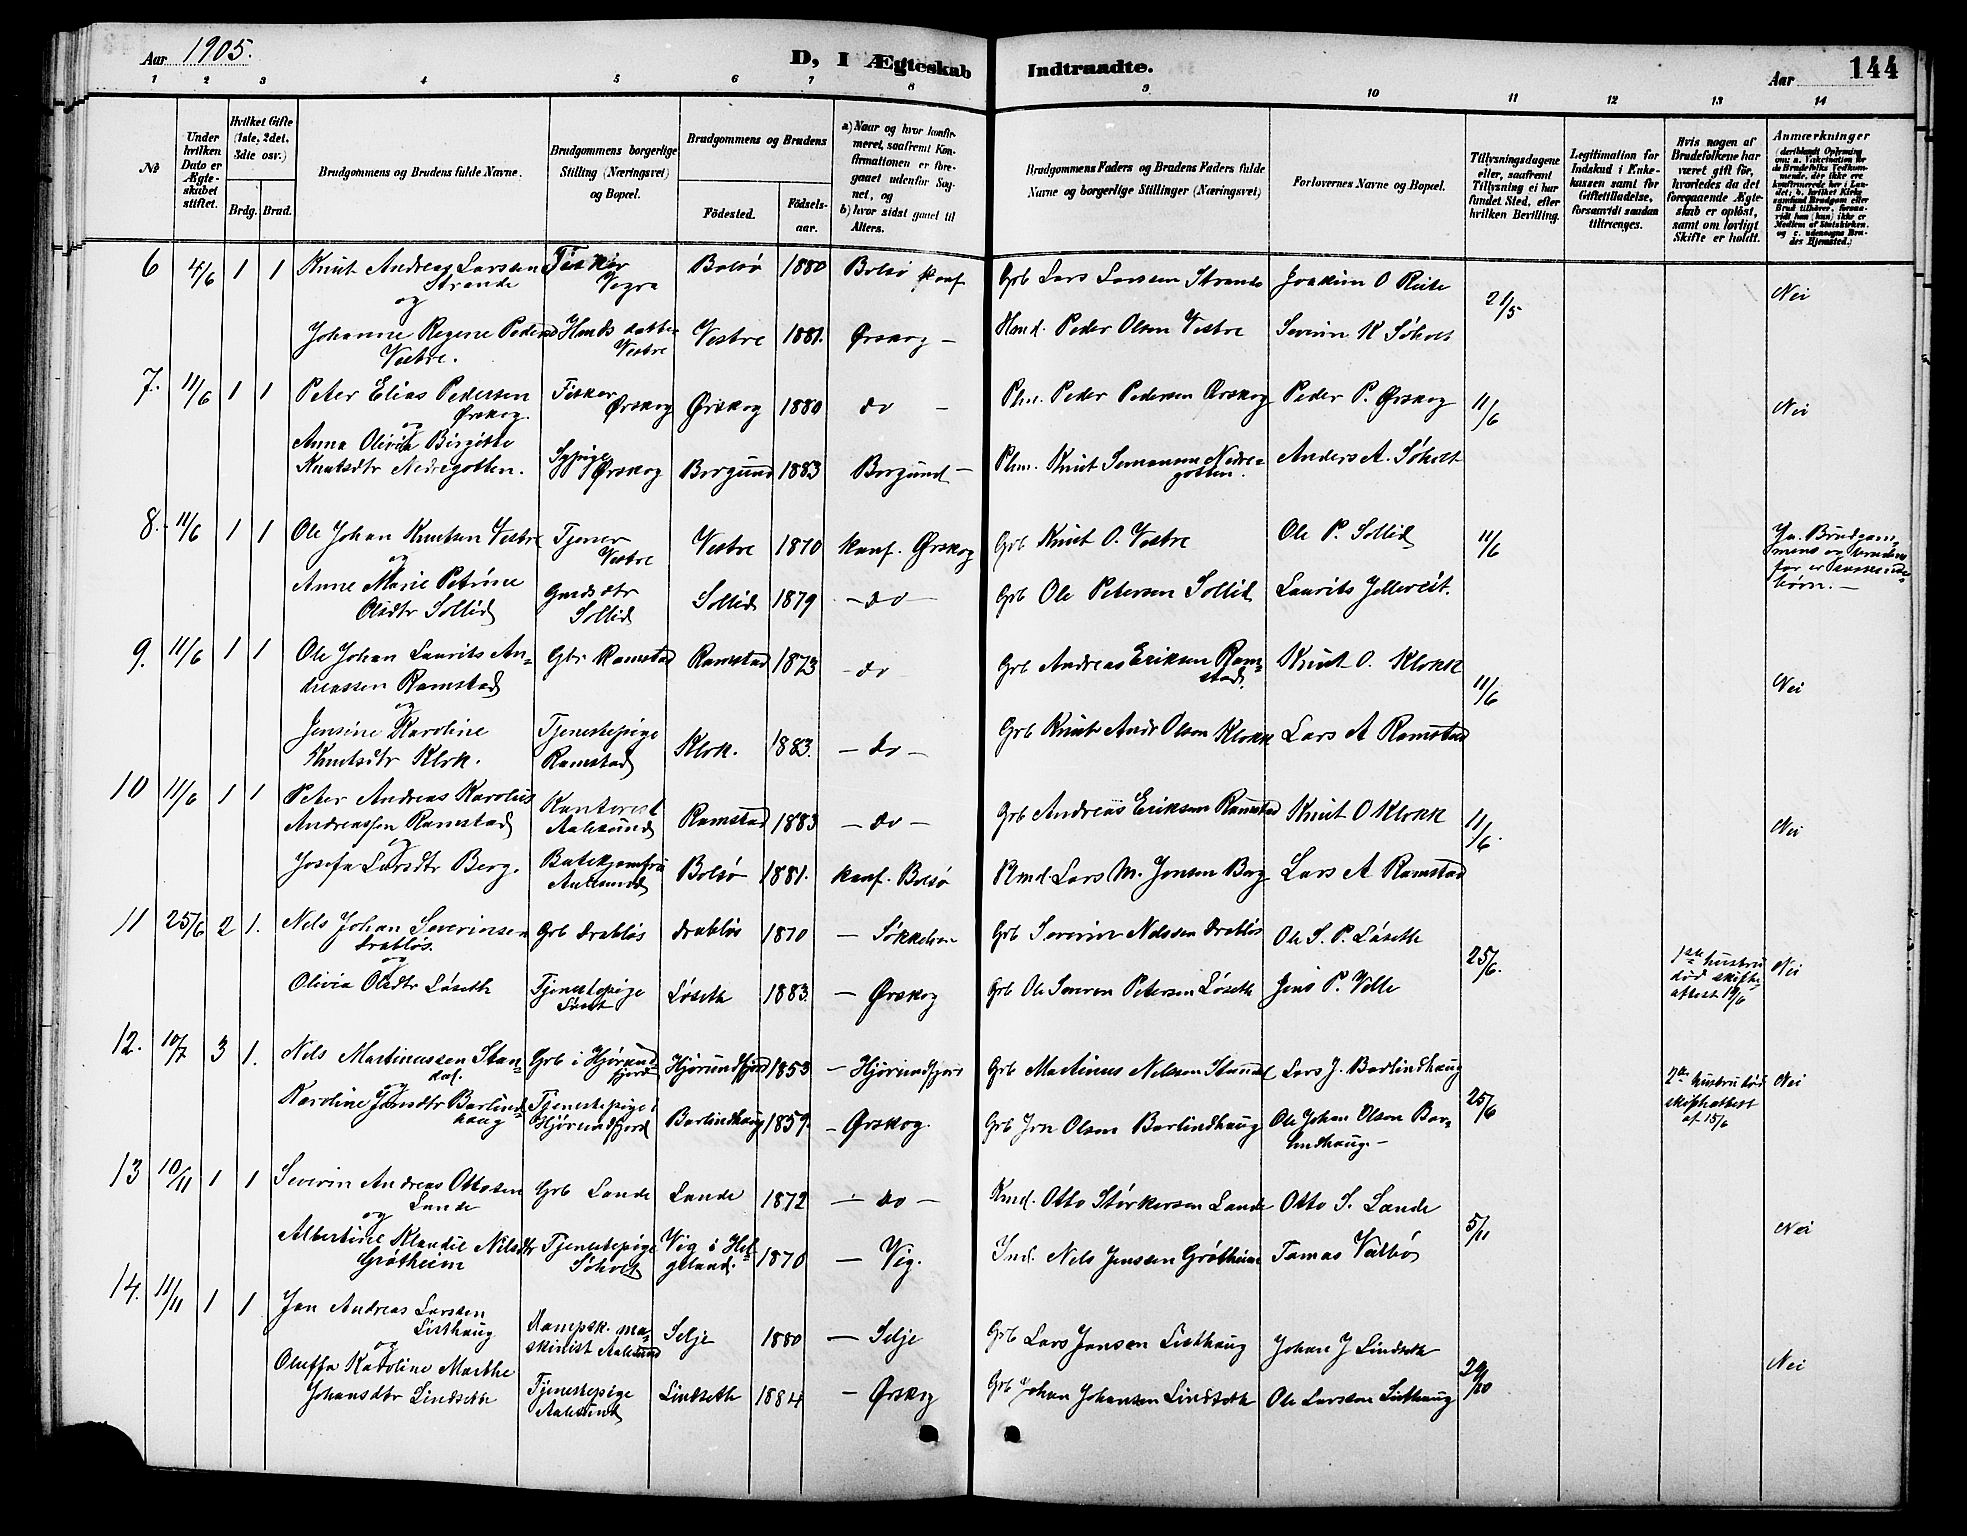 Aar 1905.
D, I Ægteskab Indtraadte.
Aar 144
1 2 3 4 5 6 7 8 9 10 11 12 13 14
No
Under hvilken Dato er Ægteskabet stiftet.
Hvilket Gifte (1ste, 2det, 3die osv.)
Brdg. Brud.
Brudgommens og Brudens fulde Navne.
Brudgommens borgerlige Stilling (Næringsvei) og Bopæl.
Brudgommens og Brudens
Födested. Födselsaar.
a) Naar og hvor konfirmeret, saafremt Konfirmationen er foregaaet udenfor Sognet, og
b) hvor sidst gaaet til Alters.
Brudgommens Faders og Brudens Faders fulde Navne og borgerlige Stillinger (Næringsvei)
Forlovernes Navne og Bopæl.
Tillysningsdagene eller, saafremt Tillysning ei har fundet Sted, efter hvilken Bevilling.
Legitimation for Indskud i Enkekassen samt for Giftetilladelse, forsaavidt saadan tiltrænges.
Hvis nogen af Brudefolkene har været gift för, hvorledes da det foregaaende Ægteskab er oplöst, samt om lovligt Skifte er holdt.
Anmærkninger
6 4/6 1 1 Knut Andreas Larssen Strande Fisker Vigra Bolsø 1880 Bolsø konf Grb Lars Larssen Strande Joakim O Reite 21/5 Nei
og
Johanne Regine Peders Vestre. Hmds datter Vestre Vestre 1881. Ørskog — Hmd. Peder Olsen Vestre Severin K Søholt
7. 11/6 1 1 Peter Elias Pedersen Ørskog. Fisker Ørskog Ørskog 1880 do — Plm. Peder Pedersen Ørskog Peder P. Ørskog 11/6 Nei
og
Anna Olivia Birgitte Knutsdtr Nedregotten. Sypige Ørskog Borgund 1883 Borgund — Plm. Knut Simonsen Nedregotten. Anders A. Søholt
8. 11/6 1 1 Ole Johan Knutsen Vestre Tjener Vestre Vestre 1870 konf. Ørskog Grb Knut O. Vestre Ole P. Sollid 11/6 Ja. Brudgommens og brudens far er
og
Anne Marie Petrine Olsdtr Sollid Gmds dtr Sollid Sollid 1879 — do — Grb Ole Petersen Sollid Laurits Jelleveit.
9. 11/6 1 1 Ole Johan Laurits Andreassen Ramstad Gbr Ramstad Ramstad 1873 — do Grb Andreas Eriksen Ramstad. Knut O. Klokk 11/6 Nei
og
Jensine Karoline Knutsdtr Klok. Tjenestepige Ramstad Klok. 1883. — do — Grb Knut Andr Olson Klokk Lars A Ramstad
10 11/6 1 1 Peter Andreas Karolus Andreassen Ramstad Kontorist Aalesund Ramstad 1883 — do — Grb Andreas Eriksen Ramstad Knut O Klokk 11/6. Nei
og
Josefa Larsdtr Berg. Butekjomfru Aalesund Bolsø 1881. konf. Bolsø Plmd. Lars M. Jonsen Berg Lars A Ramstad
11 25/6 2 1. Nels Johan Severinsen Drabløs. Grb Drabløs Drabløs 1870 — Søkkelven Grb Severin Nelssen Drabløs Ole S. P. Løseth 25/6. 1ste hustru død skifteattest 19/6 Nei
og
Olivia Olsdtr Løseth Tjenestepige Løset Løseth 1883. — Ørskog Grb Ole Severen Petersen Løseth Jens P. Velle
12. 10/7 3 1. Nils Martinussen Standal. Grb i Hjørundfjord Hjørundfjord 1853 — Hjørundfjord Grb Martinus Nelsson Standal Lars J. Barlindhaug 25/6 2den hustru død skifteattest af 15/6 Nei
og
Karoline Jonsdtr Barlindhaug Tjenestepige i Hjørundfjord Barlindhaug 1859. — Ørskog. Grb Jon Olson Barlindhaug Ole Johan Olson Barlindhaug. —
13 10/11 1 1 Severin Andreas Ottosen Lande Grb Lande Lande 1872 — do — Kmd. Otto Størkersen Lande Otto S. Lande 5/11 Nei
og
Albertine Klaudie Nilsdtr Grøtheim Tjenestepige Søholt Vig i Helgeland. 1870 — Vig. Ind. Nels Jenssen Grøtheim Tomas Valbø
14. 11/11 1 1 Jon Andreas Larssen Listhaug Dampsk. maskinist Aalesund Selje 1880 — Selje Grb Lars Jonsen Listhaug Johan J Lindseth 29/10 Nei
og
Oluffa Karoline Marthe Johansdtr Lindseth Tjenestepige Aalesund Lindseth 1884 — Ørskog Grb Johan Johansen Lindseth Ole Larssen Listhaug